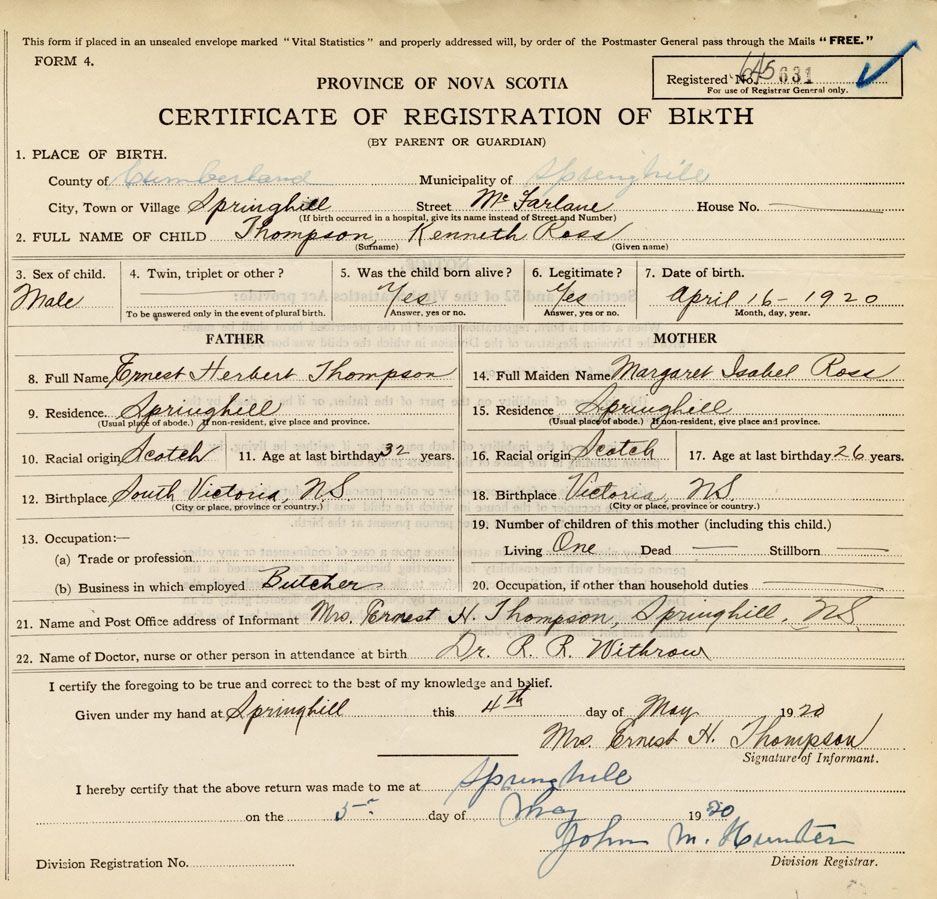 This form if placed in an unsealed envelope marked "Vital Statistics" and properly addressed will, by order of the Postmaster General pass through the Mails "FREE."
FORM 4.
Registered No. 631
For use of Registrar General only.
PROVINCE OF NOVA SCOTIA
CERTIFICATE OF REGISTRATION OF BIRTH
(BY PARENT OR GUARDIAN)
1. PLACE OF BIRTH.
County of Cumberland Municipality of Springhill
City, Town or Village Springhill Street McFarlane House No.
(If birth occurred in a hospital, give its name instead of Street and Number)
2. FULL NAME OF CHILD Thompson, Kenneth Ross
(Surname) (Given name)
3. Sex of child. 4. Twin, triplet or other? 5. Was the child born alive? 6. Legitimate? 7. Date of birth.
Male Yes Yes April 16 - 1920
To be answered only in the event of plural birth. Answer, yes or no. Answer, yes or no. Month, day, year.
FATHER MOTHER
8. Full Name Ernest Herbert Thompson 14. Full Maiden Name Margaret Isabel Ross
9. Residence. Springhill 15. Residence Springhill
(Usual place of abode.) If non-resident, give place and province. (Usual place of abode.) If non-resident, give place and province.
10. Racial origin Scotch 11. Age at last birthday 32 years. 16. Racial origin Scotch 17. Age at last birthday 26 years.
12. Birthplace South Victoria, N.S. 18. Birthplace Victoria, N.S.
(City or place, province or country.) (City or place, province or country.)
13. Occupation:— 19. Number of children of this mother (including this child.)
(a) Trade or profession Living One Dead — Stillborn —
(b) Business in which employed Butcher 20. Occupation, if other than household duties
21. Name and Post Office address of Informant Mrs. Ernest H. Thompson, Springhill, N.S.
22. Name of Doctor, nurse or other person in attendance at birth Dr. R. R. Withrow
I certify the foregoing to be true and correct to the best of my knowledge and belief.
Given under my hand at Springhill this 4th day of May 1920
Mrs. Ernest H. Thompson
Signature of Informant.
I hereby certify that the above return was made to me at Springhill
on the 5 day of May 1920
John M. Hunter
Division Registration No. Division Registrar.